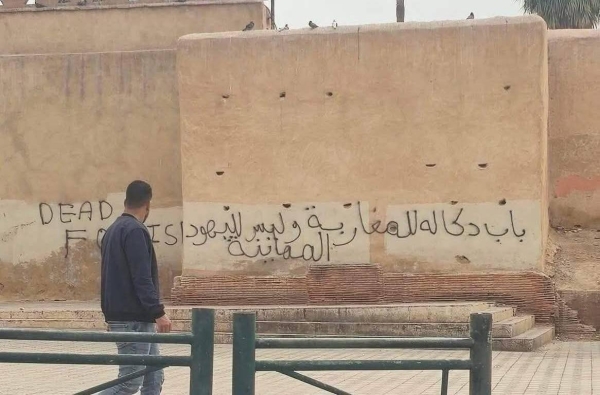 DEAD
باب دكاله للمغاربة وليس لليهود
الصهاينة